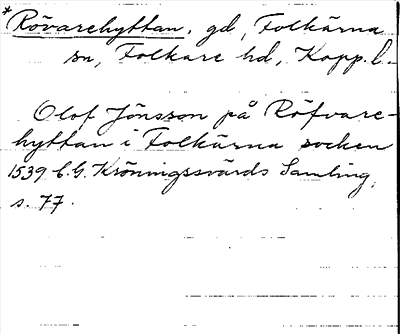 * Rövarehyttan, gd, Folkärna
sn, Folkare hd, Kopp. l.
Olof Jönsson på Röfvare-
hyttan i Folkärna socken
1539 C. G. Kröningssvärds Samling,
s. 77.